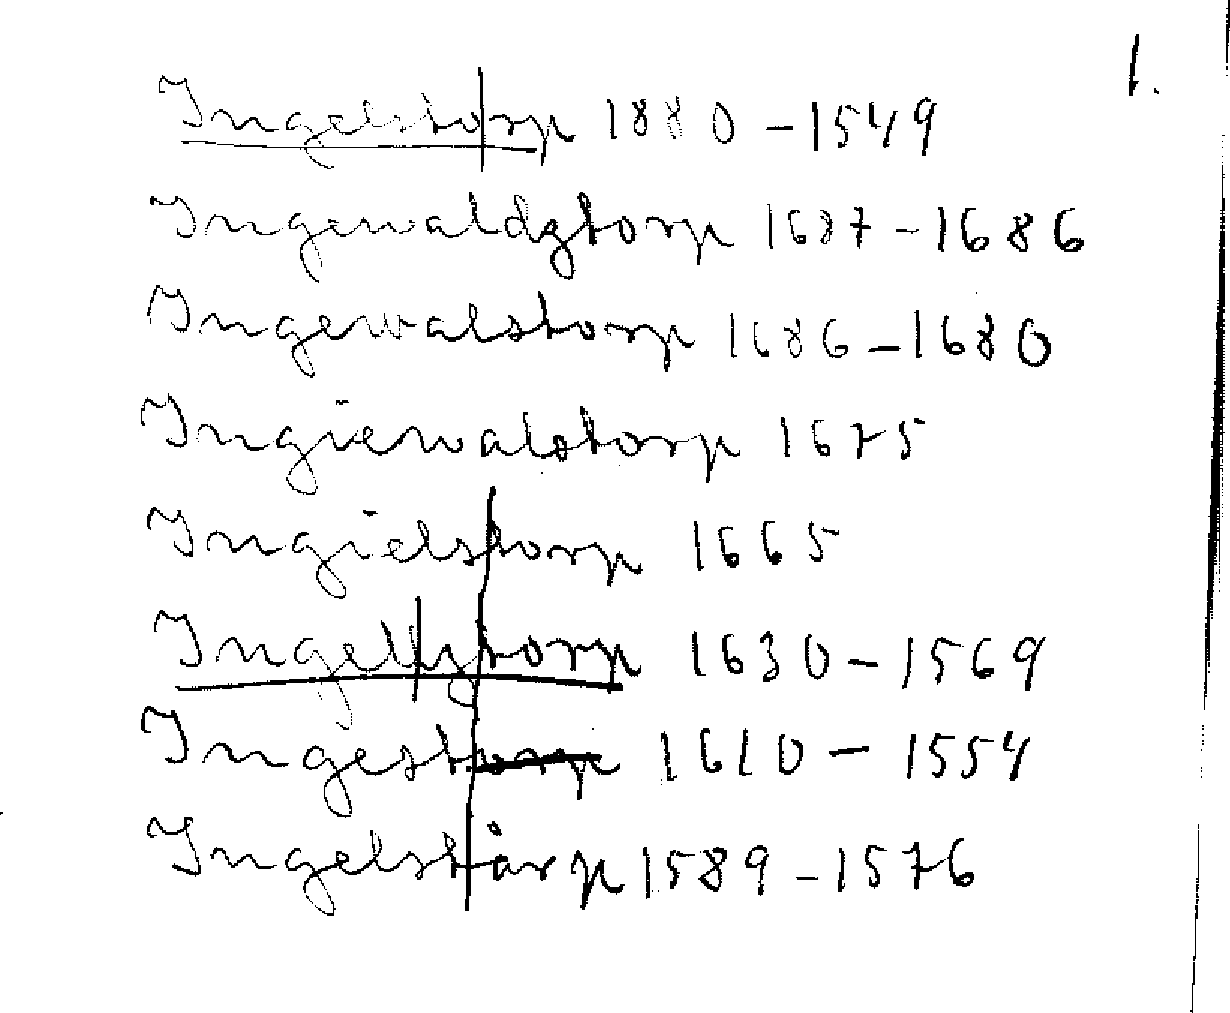 1.
Ingelstorp 1880 - 1549
Ingewaldztorp 1687 - 1686
Ingewalstorp 1686 - 1680
Ingiewalstorp 1675
Ingielstorp 1665
Ingellztorp 1630 - 1569
Ingestorp 1610 - 1554
Ingelstårp 1589 - 1576